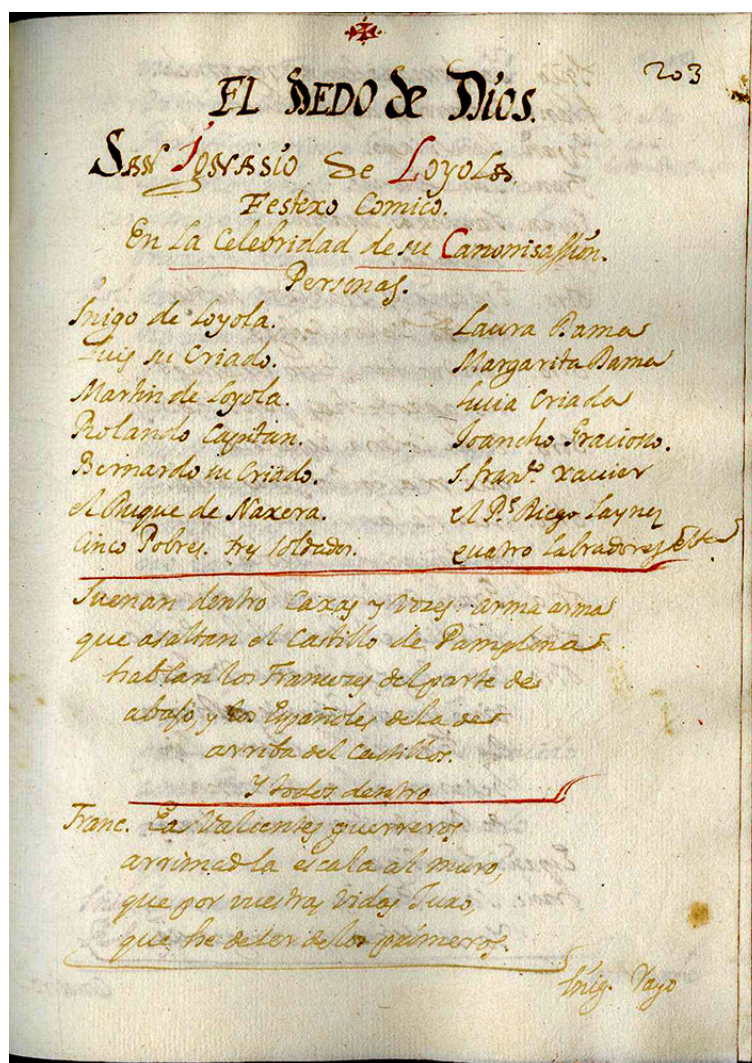 203
EL DEDO de DIOS.
SAN IGNASIO de LOYOLA
Festexo Comico.
En La Celebridad de su Canonisassion.
Personas.
Inigo de Loyola.
Luis su Criado.
Martin de Loyola.
Rolando Capitan.
Bernardo su Criado.
el Duque de Naxera.
Cinco Pobres. tres soldados.
Laura Dama
Margarita Dama
Lucia Criada
Joancho Gracioso.
S. fran.co Xauier
el P.e Diego Laynez
quatro Labradores
Suenan dentro Caxas y vozes arma arma
que asaltan el Castillo de Pamplona
hablan los Franceses del parte de
abajo, y los Españoles de la de
arriba del Castillo.
Y todos dentro
Franc. Ea Valientes guerreros
arrimad la escala al muro,
que por vuestras vidas Juro,
que he de ser de los primeros.
Inig. Vayo